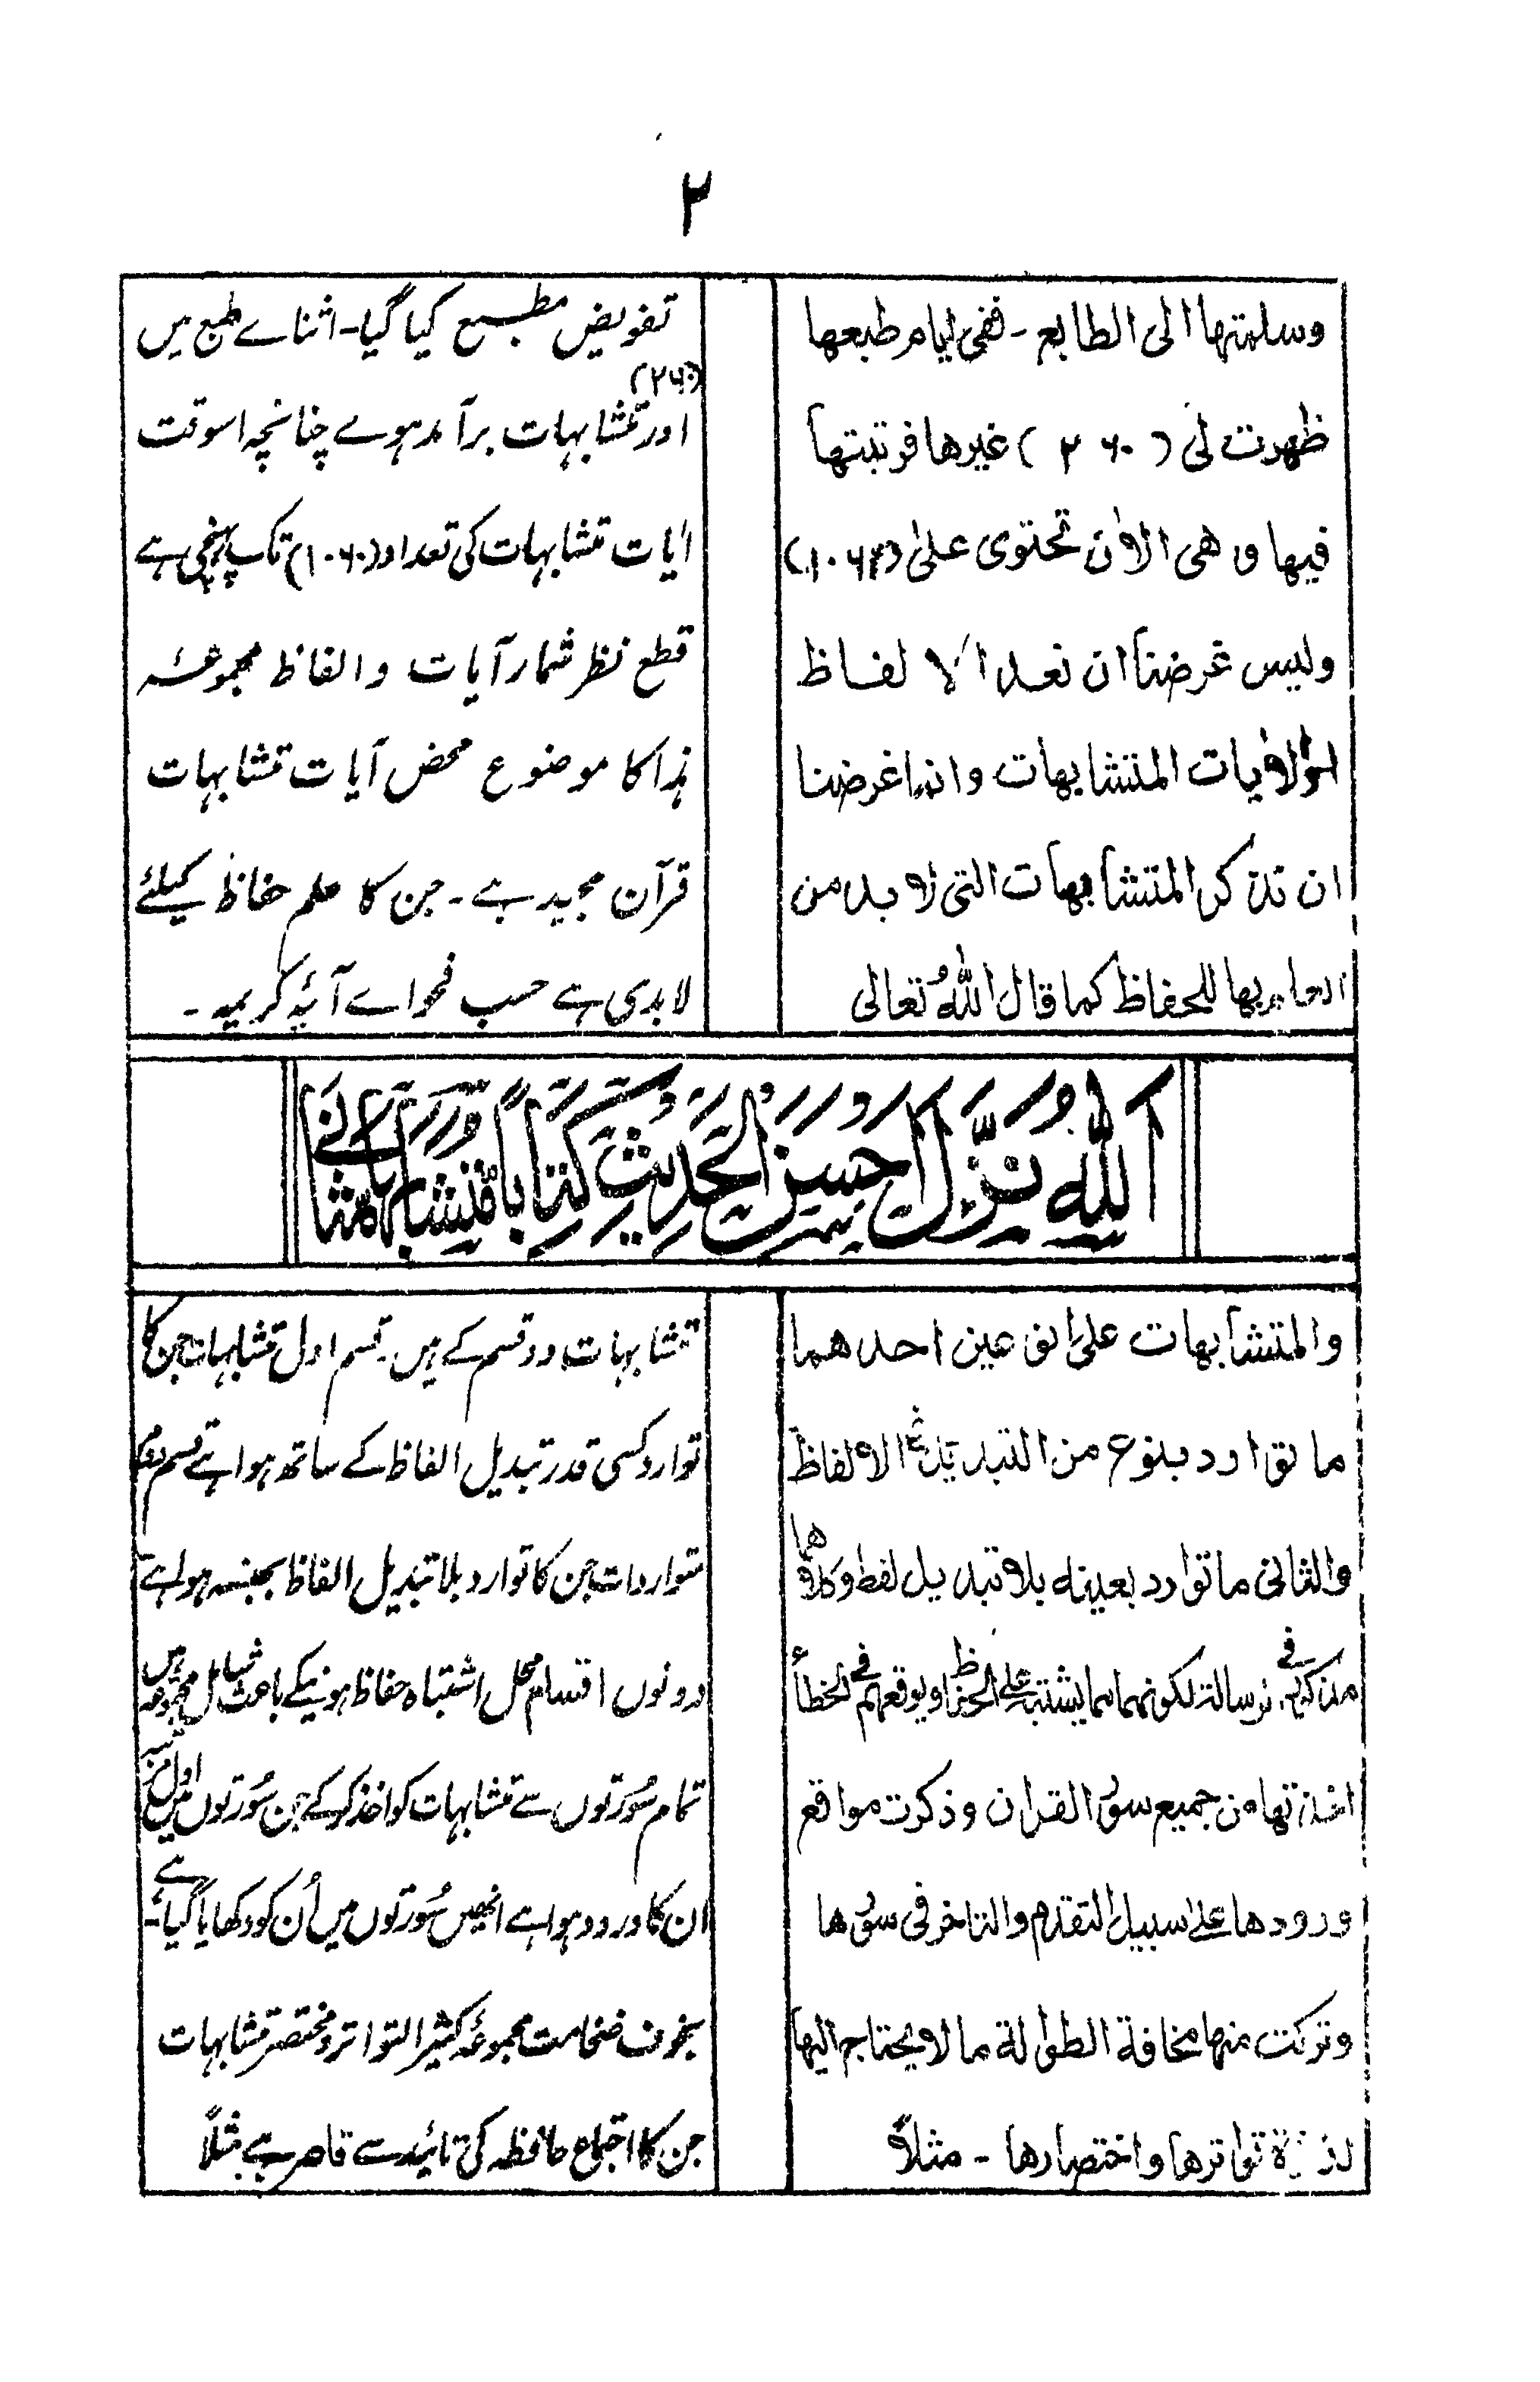 ۲
وسلمتها الى الطابع - ففى ايام طبعها
ظهرت لى (۲۶۰) غيرها فرتبتها
فيها وهى الاٰن تحتوى على (۱۰۶۲)
وليس غرضنا ان نعد الا لفاظ
اوالاٰيات المتشابهات وانما غرضنا
ان نذكر المتشابهات التى لا بد من
العلم بها للحفاظ كما قال اللهُ تعالى
تفویض مطبع کیا گیا - اثناے طبع میں
(۲۶۰)
اور متشابہات برآمد ہوے چنانچہ اسوقت
آیات متشابہات کی تعداد (۱۰۶۰) تک پہنچی ہے
قطع نظر شمار آیات والفاظ مجموعۂ
ہذا کا موضوع محض آیات متشابہات
قرآن مجید ہے - جن کا علم حفاظ کیلئے
لابدی ہے حسب فحواے آیۂ کریمہ -
اَللّٰهُ نَزَّلَ اَحْسَنَ الْحَدِيْثِ كِتَابًا مُّتَشَابِهًا مَّثَانِيَ
والمتشابهات على نوعين احدهما
ما توارد بنوع من التبديل فى الالفاظ
والثانى ماتوارد بعينه بلا تبديل لفظ وكلاهما
مذكور فى الرسالة لكونهما مما يشتبه على الحفاظ ويوقعهم فى الخطأ
اخذتها من جميع سور القران وذكرت مواقع
ورودها على سبيل التقدم والتاخر فى سورها
وتركت منها مخافة الطوالة مالا يحتاج اليها
تواترها واختصارها - مثلاً
متشابہات دو قسم کے ہیں۔ قسم اول متشابہات جن کا
توارد کسی قدر تبدیل الفاظ کے ساتھ ہوا ہے قسم دوم
متواردات جن کا توارد بلا تبدیل الفاظ بجنسہ ہوا ہے
دونوں اقسام محل اشتباہ حفاظ ہونیکے باعث شامل مجموعہ ہیں
تمام سُورتوں سے متشابہات کو اخذ کر کے جن سُورتوں میں اول
ان کا ورود ہوا ہے انھیں سُورتوں میں اُن کو دکھایا گیا ہے -
بخوف ضخامت مجموعہ کثیر التواتر و مختصر متشابہات
جن کا اجتماع حافظہ کی تائید سے قاصر ہے مثلاً